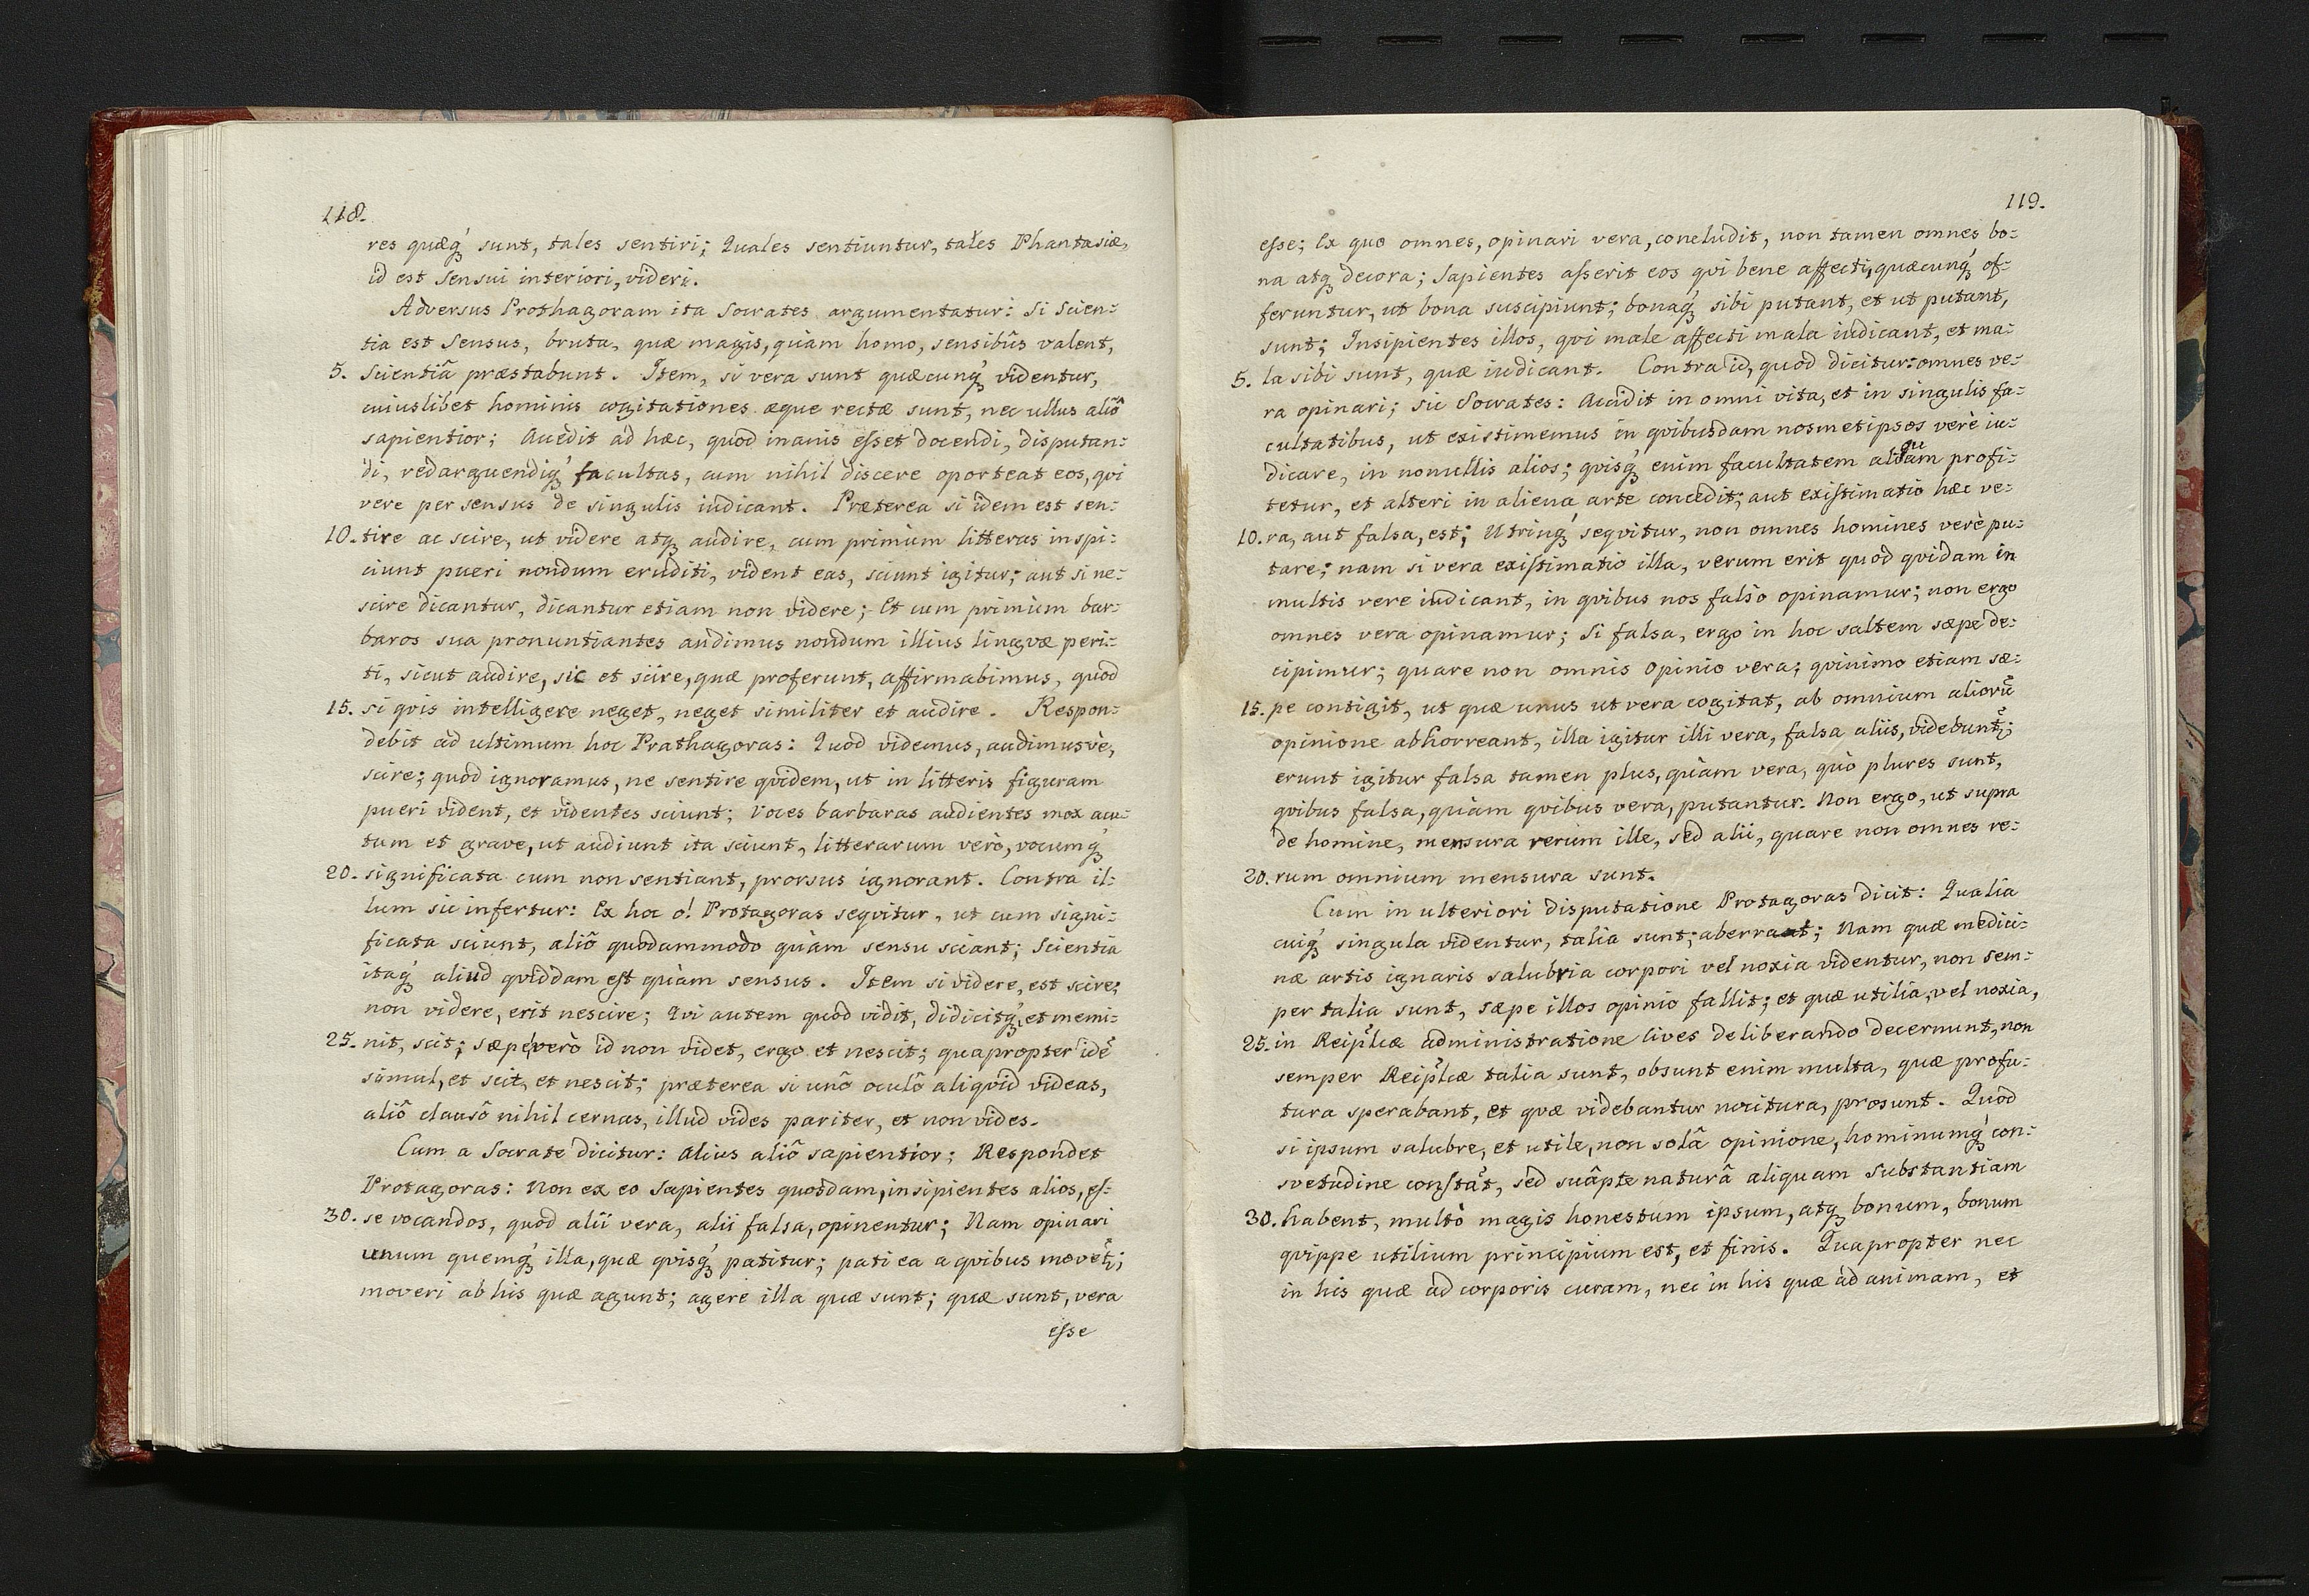 118.
res quæq́ sunt, tales sentiri; Quales sentiuntur, tales Phantasiæ,
id est sensui interiori, videri.
Adversus Prothagoram ita Socrates argumentatur: Si Scien:
tia est Sensus, bruta, quæ magis, quàm homo, sensibûs valent,
5. scientiâ præstabunt. Item, si vera sunt quæcunq́ videntur,
cuiuslibet hominis cogitationes æque rectæ sunt, nec ullus aliô
sapientior; Accedit ad hæc, quod inanis esset docendi, disputan:
di, redarguendiq́ facultas, cum nihil discere oporteat eos, qvi
vere per sensus de singulis iudicant. Præterea si idem est sen:
10. tire ac scire, ut videre atq audire, cum primùm litteras inspi:
ciunt pueri nondum eruditi, vident eas, sciunt igitur; aut si ne:
scire dicantur, dicantur etiam non videre; Et cum primùm bar:
baros sua pronuntiantes audimus nondum illius lingvæ peri:
ti, sicut audire, sic et scire, quæ proferunt, affirmabimus, quod
15. si qvis intelligere neget, neget similiter et audire. Respon:
debit ad ultimum hoc Prathagoras: Quod videmus, audimusvè,
scire; quod ignoramus, ne sentire qvidem, ut in litteris figuram
pueri vident, et videntes sciunt; Voces barbaras audientes mox acu:
tum et grave, ut audiunt ita sciunt, litterarum verò, vocumq́
20. significata cum non sentiant, prorsus ignorant. Contra il:
lum sic infertur: Ex hoc o! Protagoras seqvitur, ut cum signi:
ficata sciunt, aliô quodammodo quàm sensu sciant; Scientia
itaq́ aliud qviddam est quàm sensus. Item si videre, est scire;
non videre, erit nescire; Qvi autem quod vidit, didicitq́, et memi:
25. nit, scit; sæpe verò id non videt, ergo et nescit; quapropter idẽ
simul, et scit, et nescit; præterea si unô oculô aliqvid videas,
aliô clausô nihil cernas, illud vides pariter, et non vides.
Cum a Socrate dicitur: Alius aliô sapientior; Respondet
Protagoras: Non ex eo sapientes quosdam, insipientes alios, es:
30. se vocandos, quod alii vera, alii falsa, opinentur; Nam opinari
unum quemq́ illa, quæ qvisq́ patitur; pati ea a qvibus movet̃;
moveri ab his quæ agunt; agere illa quæ sunt; quæ sunt, vera
esse
119.
esse; Ex quo omnes, opinari vera, concludit, non tamen omnes bo:
na atq decora; Sapientes asserit eos qvi bene affecti, quæcunq́ of:
feruntur, ut bona suscipiunt; bonaq́ sibi putant, et ut putant,
sunt; Insipientes illos, qvi male affecti mala iudicant, et ma:
5. la sibi sunt, quæ iudicant. Contra id, quod dicitur: omnes ve:
ra opinari; sic Socrates: Accidit in omni vita, et in singulis fa:
cultatibus, ut existimemus in qvibusdam nosmetipsos verè iu:
dicare, in nonullis alios; qvisq́ enim facultatem aliquam profi:
tetur, et alteri in aliena arte concedit; aut existimatio hæc ve:
10. ra, aut falsa, est; Utrinq́ seqvitur, non omnes homines verè pu:
tare; nam si vera existimatio illa, verum erit quod qvidam in
multis vere iudicant, in qvibus nos falsò opinamur; non ergo
omnes vera opinamur; Si falsa, ergo in hoc saltem sæpe de:
cipimur; quare non omnis opinio vera; qvinimo etiam sæ:
15. pe contigit, ut quæ unus ut vera cogitat, ab omnium aliorũ
opinione abhorreant, illa igitur illi vera, falsa aliis, videbunt̃;
erunt igitur falsa tamen plus, quàm vera, quò plures sunt,
qvibus falsa, quàm qvibus vera, putantur. Non ergo, ut supra
de homine, mensura rerum ille, sed alii, quare non omnes re:
20. rum omnium mensura sunt.
Cum in ulteriori disputatione Protagoras dicit: Qualia
cuiq́ singula videntur, talia sunt; aberrat; Nam quæ medici:
næ artis ignaris salubria corpori vel noxia videntur, non sem:
per talia sunt, sæpe illos opinio fallit; et quæ utilia, vel noxia,
25. in Reip̃licæ administratione Cives deliberando decernunt, non
semper Reip̃licæ talia sunt, obsunt enim multa, quæ profu:
tura sperabant, et qvæ videbantur nocitura, prosunt. Quod
si ipsum salubre, et utile, non solâ opinione, hominumq́ con:
svetudine constãt, sed suâpte naturâ aliquam substantiam
30. habent, multò magis honestum ipsum, atq bonum, bonum
qvippe utilium principium est, et finis. Quapropter nec
in his quæ ad corporis curam, nec in his quæ ad animam, et